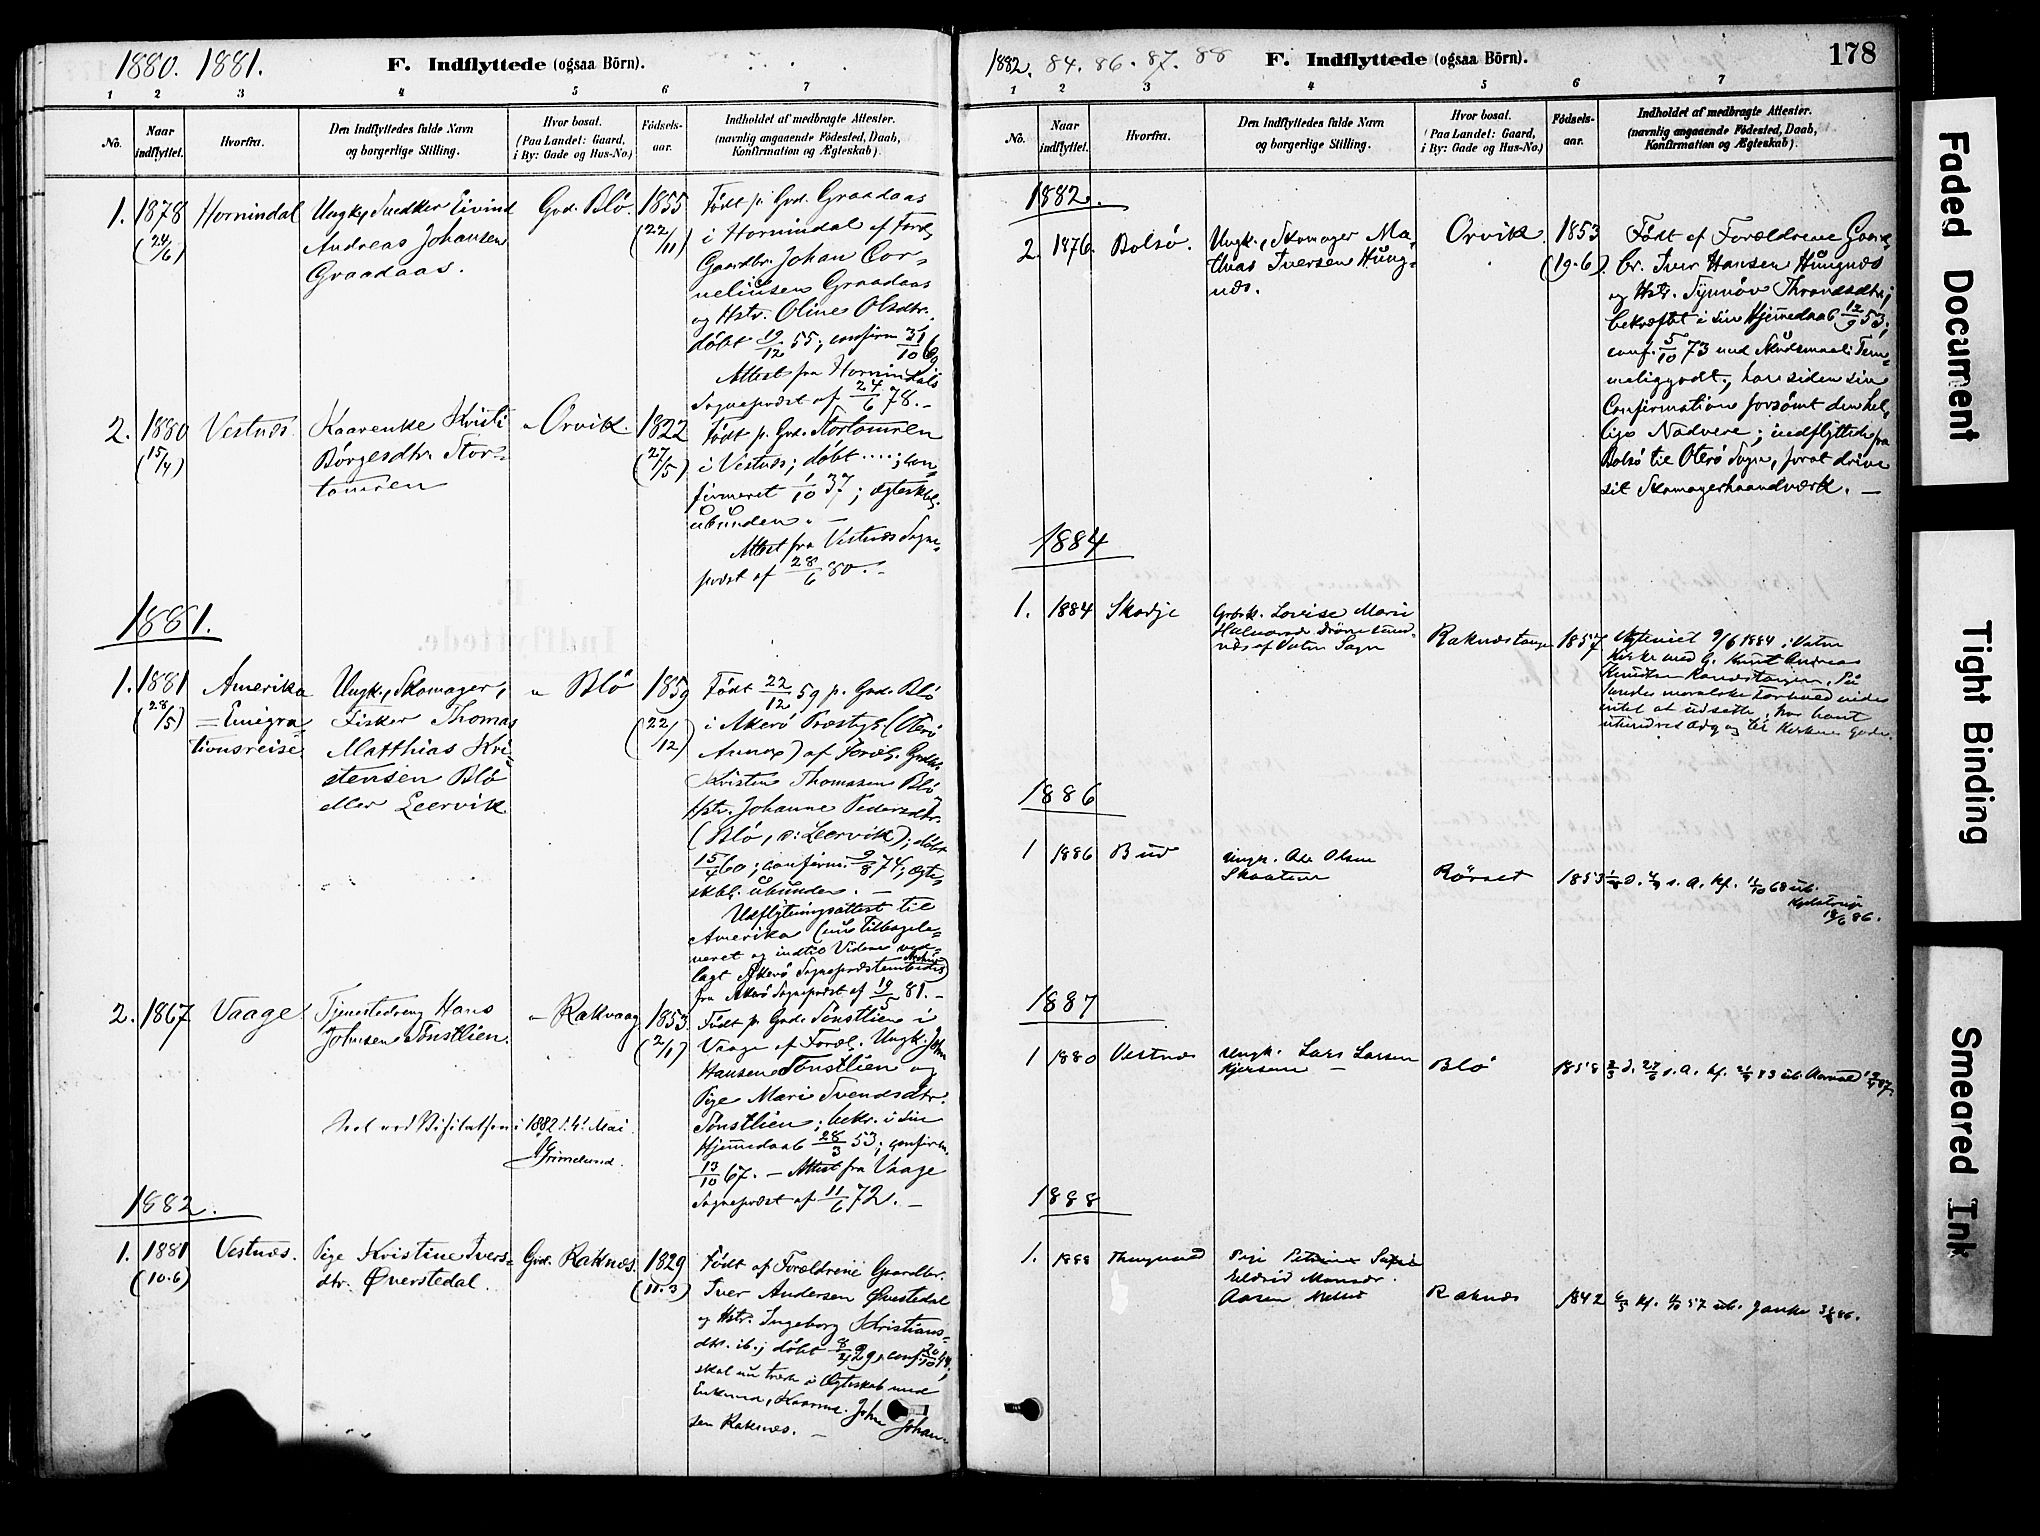 1880. 1881.
F. Indflyttede (ogsaa Börn).
1 2 3 4 5 6 7
No. Naar indflyttet. Hvorfra. Den Indflyttedes fulde Navn og borgerlige Stilling. Hvor bosat. (Paa Landet: Gaard, i By: Gade og Hus-No.) Födsels-aar. Indholdet af medbragte Attester. (navnlig angaaende Födested, Daab, Konfirmation og Ægteskab).
1. 1878 (24/6) Hornindal
Ungk., Snedker Eivind
Andreas Johansen
Graadaas.
Grd. Blö. 1855 (22/11)
Födt p. Grd. Graadaas
i Hornindal af Foræl.
Gaardbr. Johan Cor-
neliusen Graadaas
og Hstr. Oline Olsdtr.
döbt 19/12 55; confirm 31/10
Attest fra Hornindals
Sognepræst af 24/6 78. -
2. 1880 (15/4) Vestnæs
Kaarenke Kristi
Börgesdtr. Stor-
tomren
" Orvik. 1822 (27/5)
Födt p. Grd. Stortomren
i Vestnæs; döbt ....; con-
firmeret 1/10 37; ægteskbl.
ubunden. -
Attest fra Vestnæs Sogne-
præst af 28/6 80. -
1881.
1. 1881 (28/5) Amerika
= Emigra
tionsreise.
Ungk., Skomager,
Fisker Thomas
Matthias Kri
stensen Blö
eller Leervik
" Blö 1859 (22/12)
Födt 22/12 59 p. Grd. Blö
i Akerö Præstgj. (Oterö
Annex) af Foræl. Grdbr.
Kristen Thomasen Blö
Hstr. Johanne Pedersdtr.
(Blö, o: Leervik); döbt
15/4 60; confirm. 9/8 74; ægte-
skbl. ubunden. -
Udflytningsattest til
Amerika (nu tilbagele-
veret og indtil Videre ved-
lagt Akerö Sognepræstembeds Archiv)
fra Akerö Sognepræst af 19/5 81. -
2. 1867 Vaage
Tjenestedreng Hans
Johnsen Sönstlien.
" Rakvaag 1853. (2/1)
Födt p. Grd. Sönstlien i
Vaage af Foræl. Ungk. John
Hansen Sönstlien og
Pige Mari Svendsdtr.
Sönstlien; bekr. i sin
Hjemmedaab 28/3 53; confirm.
13/10 67. - Attest fra Vaage
Sognepræst af 11/6 72. -
Seet ved Visitatsen i 1882 d. 4. Mai
Grimelund.
1882.
1. 1881 (10-6) Vestnæs.
Pige Kristine Ivers-
dtr. Överstedal.
Grd. Raknæs. 1829 (10-3)
Födt af Forældrene Gaardbr.
Iver Andersen Överstedal
og Hstr. Ingeborg Kristians-
dtr. ib.; döbt 8/4 29, conf.
skal nu træde i Ægteskab med
Enkem., Kaarm. John Johan-
sen Raknæs. -
1882. 84. 86. 87. 88
F. Indflyttede (ogsaa Börn).
178
1 2 3 4 5 6 7
No. Naar indflyttet. Hvorfra. Den Indflyttedes fulde Navn og borgerlige Stilling. Hvor bosat. (Paa Landet: Gaard, i By: Gade og Hus-No.) Födsels-aar. Indholdet af medbragte Attester. (navnlig angaaende Födested, Daab, Konfirmation og Ægteskab).
1882.
2. 1876. Bolsö.
Ungk., Skomager Ma-
thias Iversen Hung-
næs.
Orvik. 1853 (19-6)
Födt af Forældrene Gaard-
br. Iver Hansen Hungnæs
og Hstr. Synnöv Throndsdtr;
bekræftet i sin Hjemmedaab 12/9 53;
conf. 5/10 73 med Skudsmaal: Tem-
meliggodt; har siden sin
Confirmation forsömt den hel-
lige Nadvere; indflyttede fra
Bolsö til Oterö Sogn, forat drive
sit Skomagerhaandværk. -
1884
1. 1884 Skodje
Grbsk. Lovise Marie
Halvorsd.
af Vatne Sogn
Raknæstangen 1857
Ægteviet 9/6 1884 i Vatne
Kirke med G. Knut Andreas
Knudsen Raknæstangen. Paa
hendes moralske Forhold vides
intet at udsætte, har havt
uhindret Adg. til Kirkens Goder.
1886
1 1886 Bud
Ungk. Ole Olsen
Skaaten
Rörset 1853
1887
1 1880 Vestnæs
Ungk. Lars Larsen
Kjersem -
Blö 1858
1888
1. 1888 Thingvold
Pige Petrine Sofie
Eldrid Monsdr.
Aasen
Raknæs 1842
Faded Document
Tight Binding
Smeared Ink